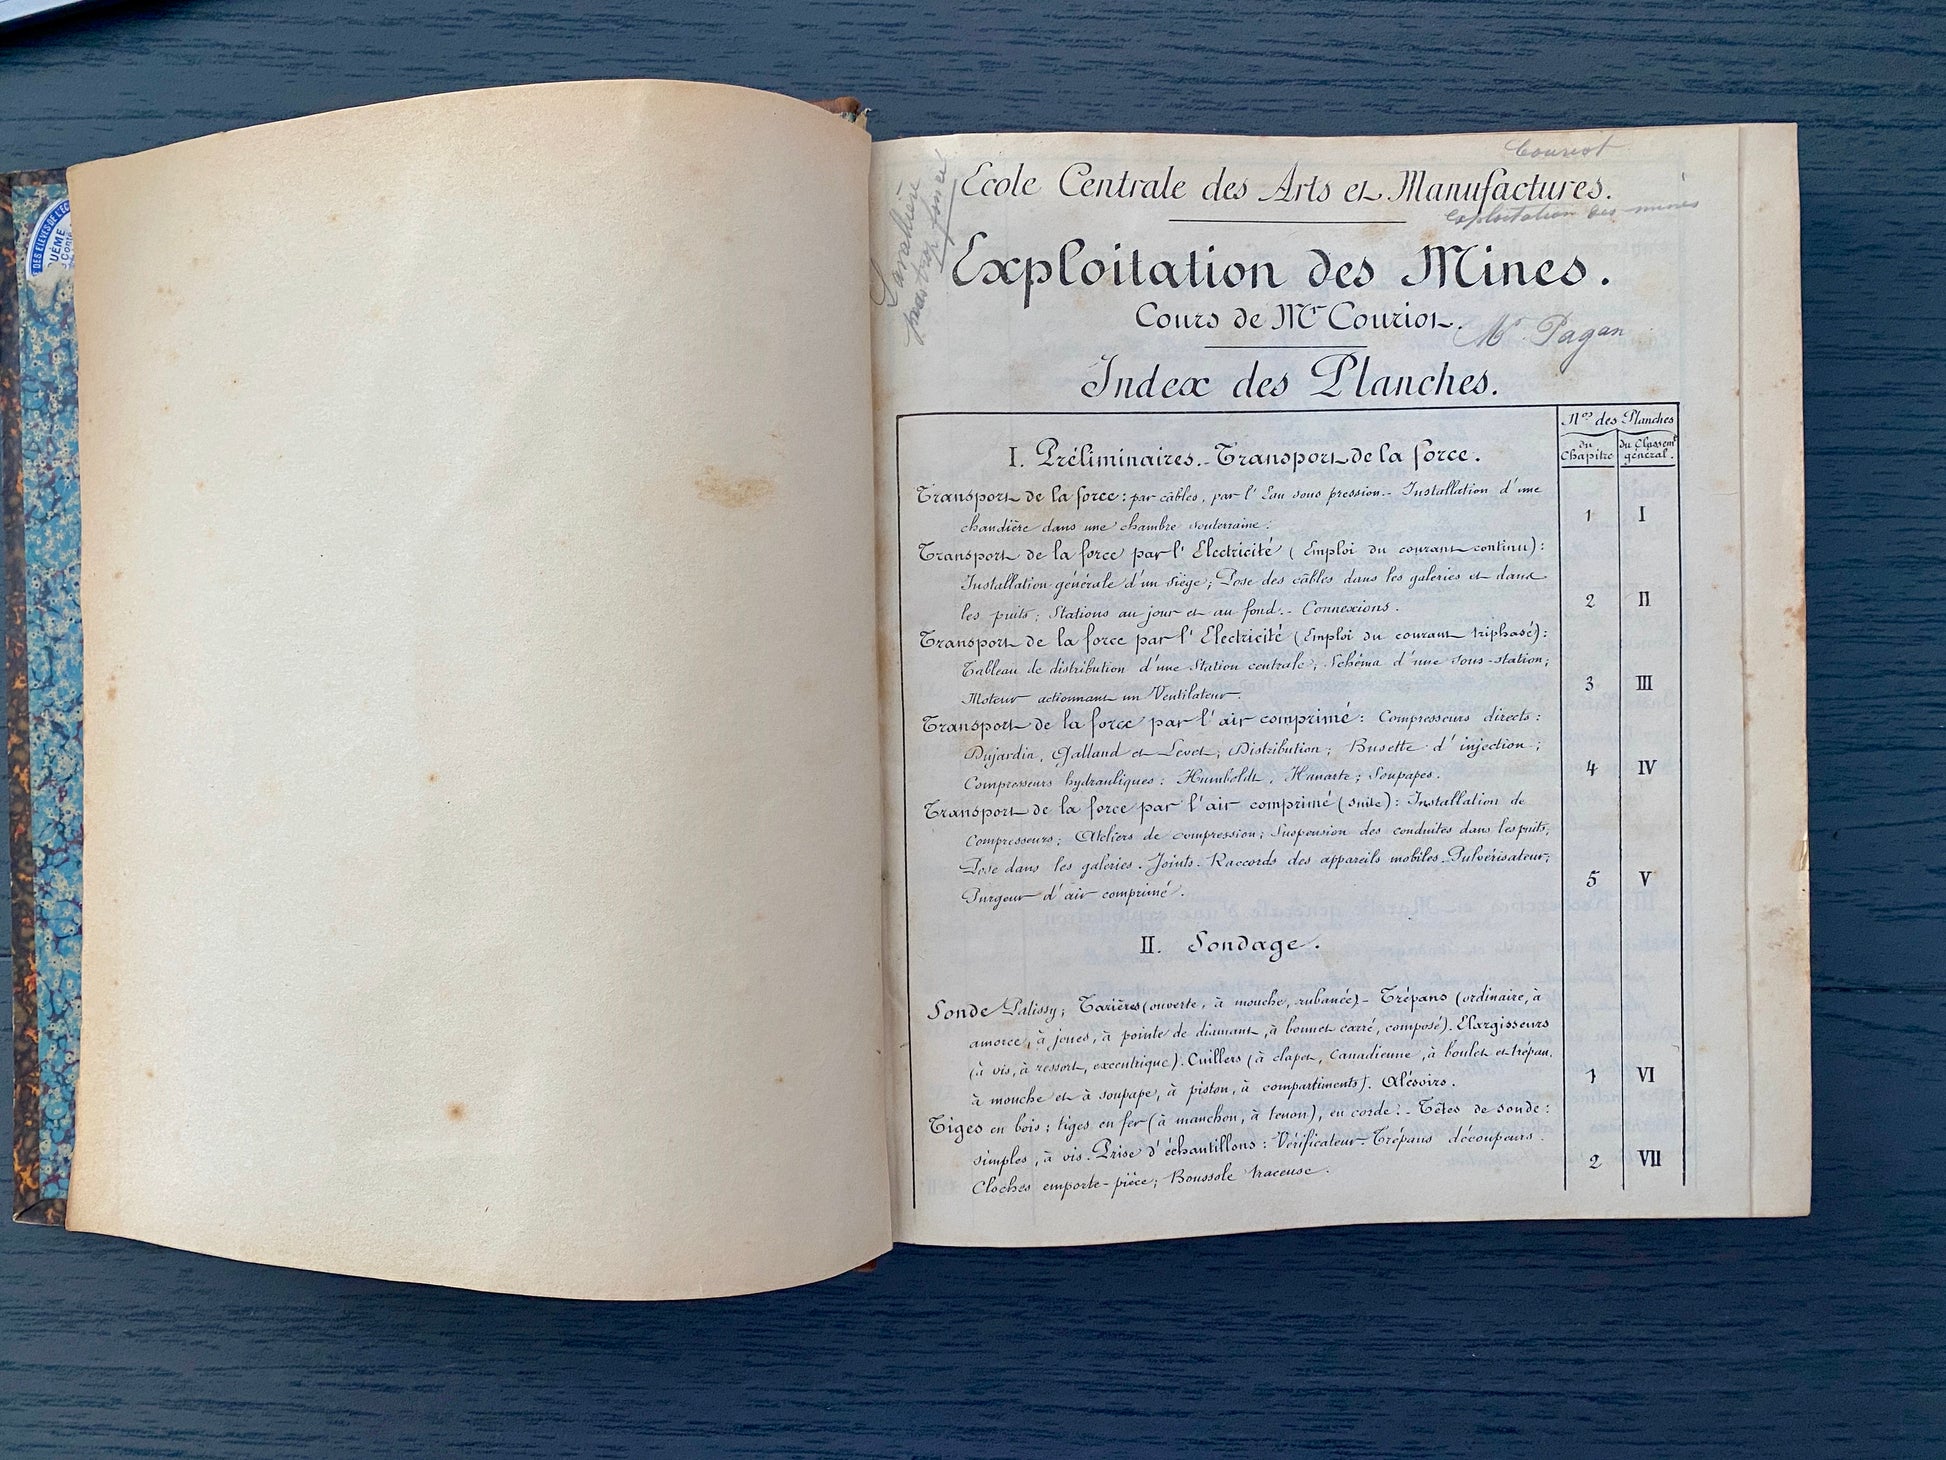 DES ELEVES DE L'EC
UÈME
Couriot
Ecole Centrale des Arts et Manufactures.
Exploitation des mines
Exploitation des Mines.
Cours de Mr Couriot.
Mr Pagan
Index des Planches.
Nos des Planches
du Chapitre
du Classemt général.
I. Préliminaires. - Transport de la force.
Transport de la force : par câbles, par l'Eau sous pression. - Installation d'une
chaudière dans une chambre souterraine.
1 I
Transport de la force par l'Electricité (Emploi du courant continu) :
Installation générale d'un siège ; Pose des câbles dans les galeries et dans
les puits ; Stations au jour et au fond. - Connexions.
2 II
Transport de la force par l'Electricité (Emploi du courant triphasé) :
Tableau de distribution d'une Station centrale ; Schéma d'une sous-station ;
Moteur actionnant un Ventilateur.
3 III
Transport de la force par l'air comprimé : Compresseurs directs :
Dujardin, Galland et Levet ; Distribution ; Busette d'injection ;
Compresseurs hydrauliques : Humboldt, Hanarte ; Soupapes.
4 IV
Transport de la force par l'air comprimé (suite) : Installation de
Compresseurs ; Ateliers de compression ; Suspension des conduites dans les puits,
Pose dans les galeries. Joints. Raccords des appareils mobiles. Pulvérisateur ;
Purgeur d'air comprimé.
5 V
II. Sondage.
Sonde Palissy ; Tarières (ouverte, à mouche, rubanée) - Trépans (ordinaire, à
amorce, à joues, à pointe de diamant, à bonnet carré, composé). Elargisseurs
(à vis, à ressort, excentrique). Cuillers (à clapet, Canadienne, à boulet et trépan,
à mouche et à soupape, à piston, à compartiments). Alésoirs.
1 VI
Tiges en bois ; tiges en fer (à manchon, à tenon), en corde. - Têtes de sonde :
simples, à vis. Prise d'échantillons : Vérificateur - Trépans découpeurs.
Cloches emporte-pièce ; Boussole traceuse.
2 VII